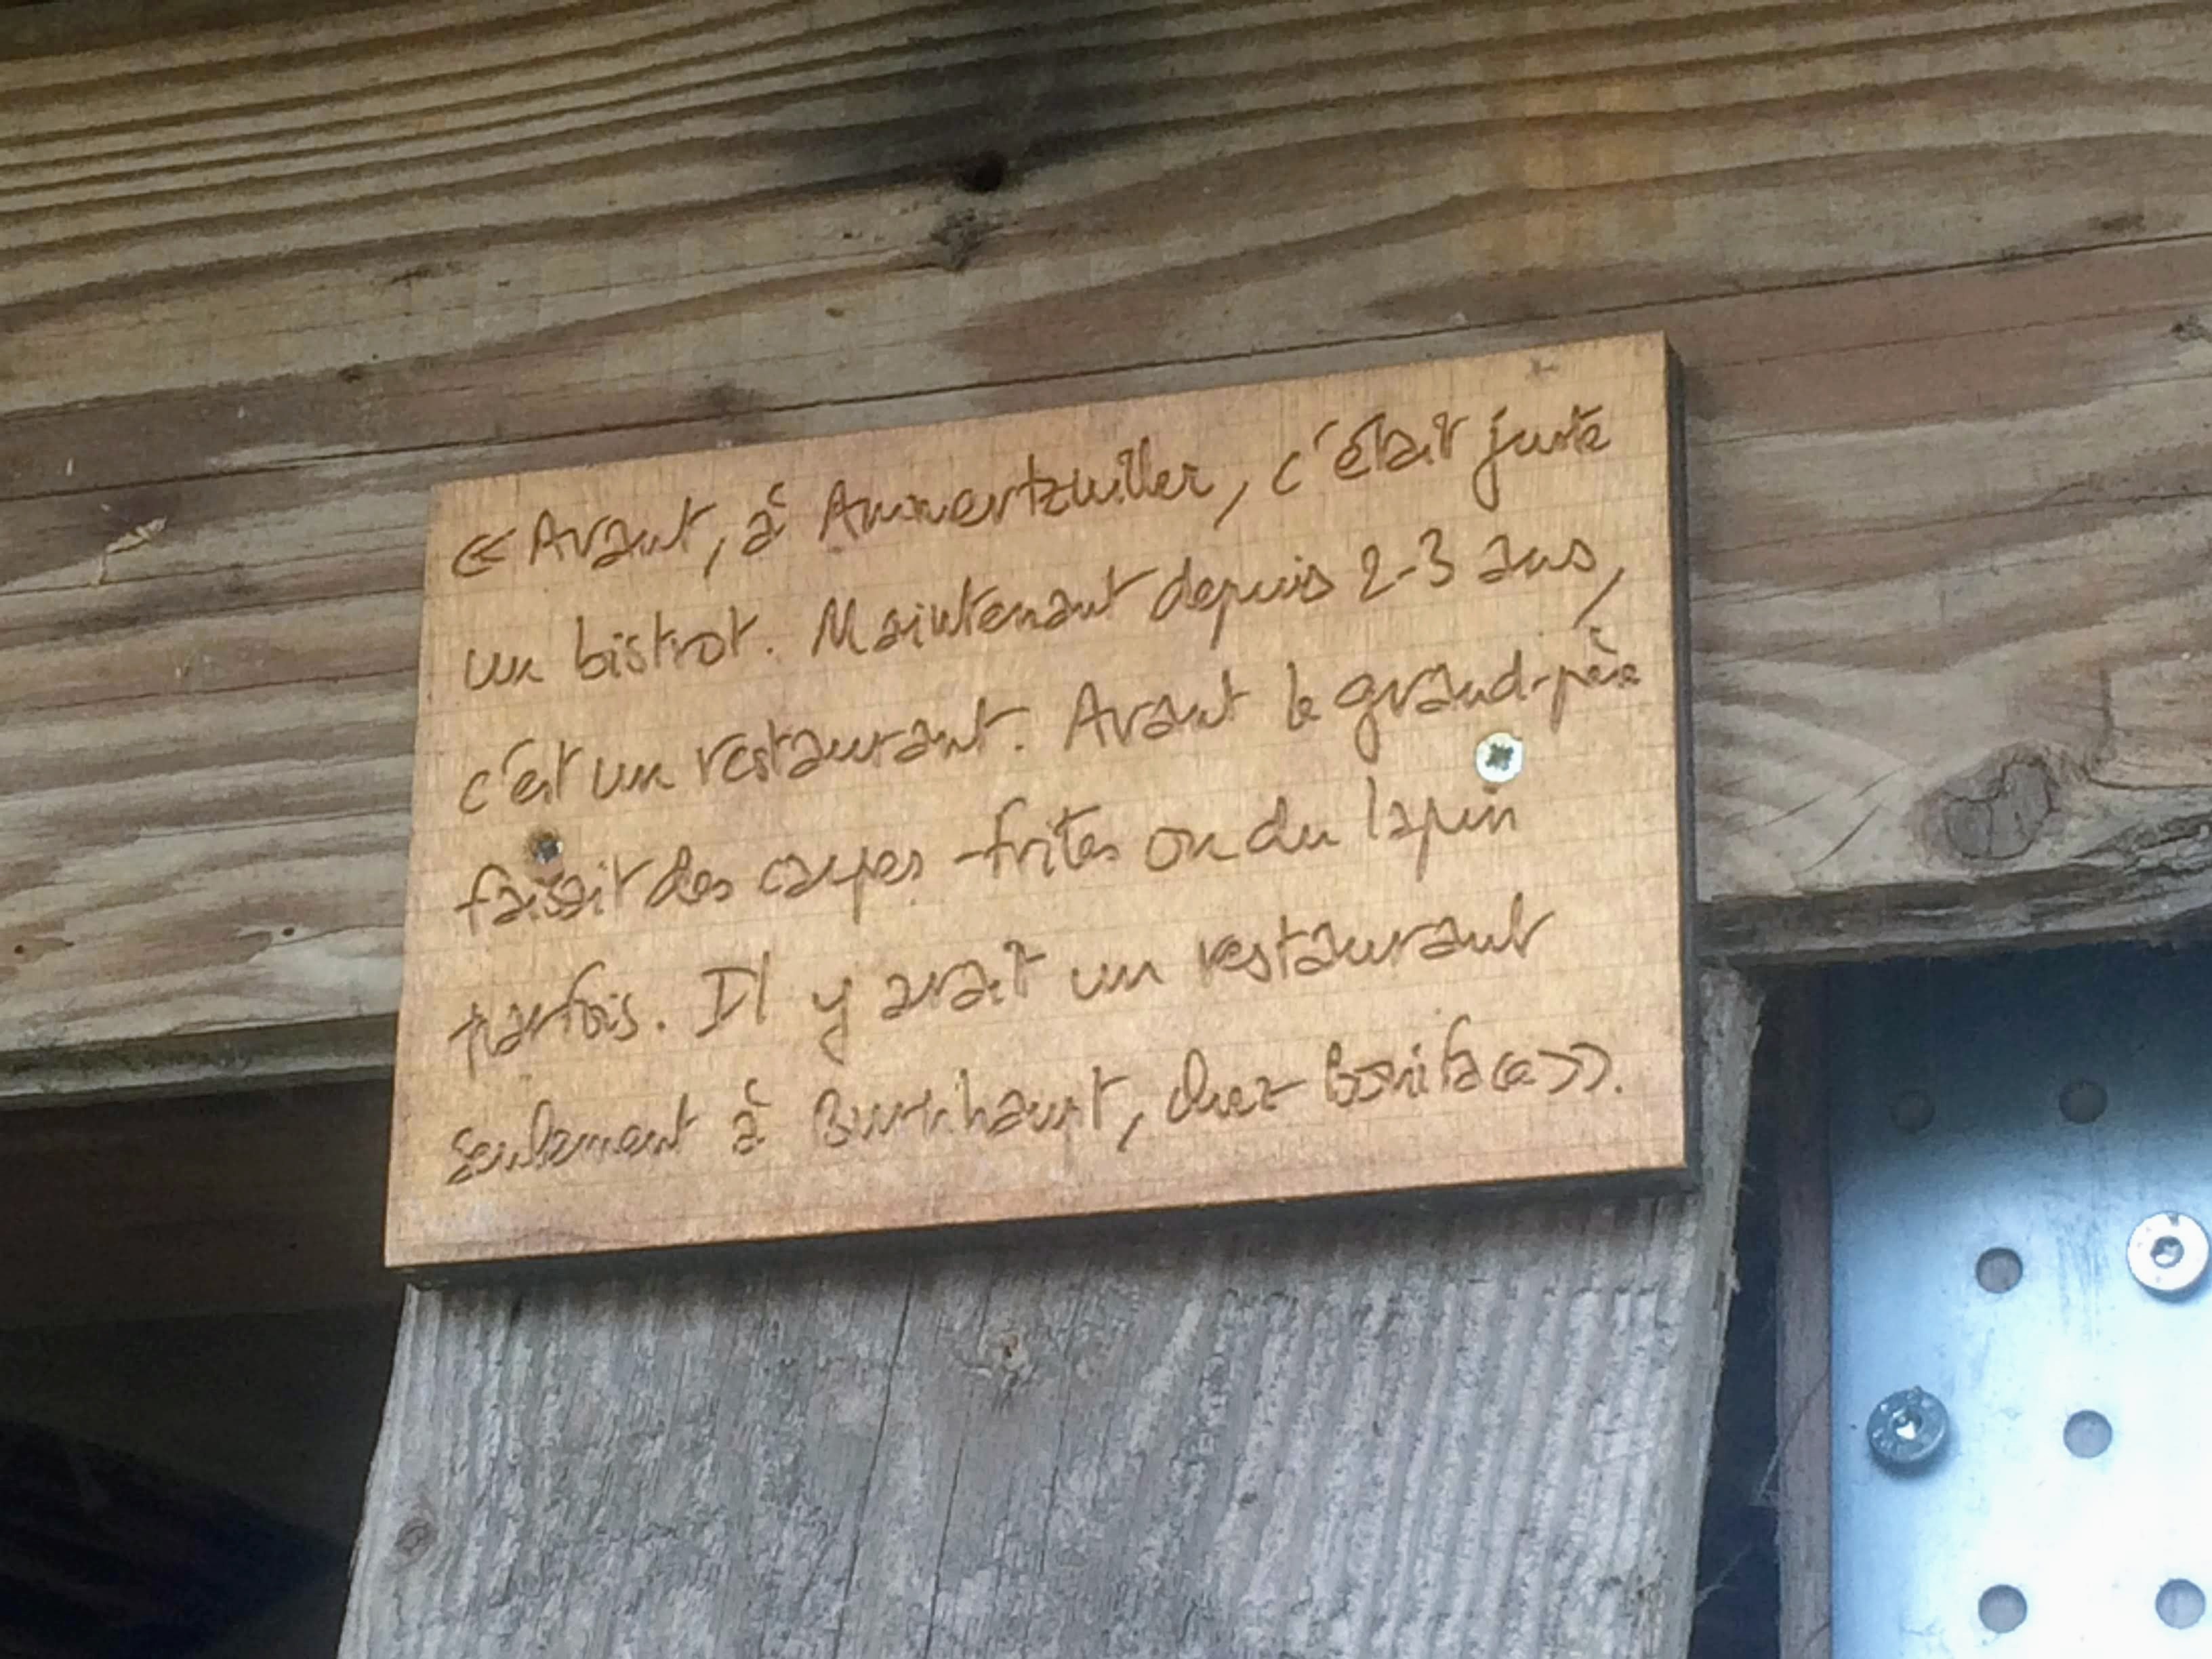 « Avant, à Ammertzwiller, c'était juste
un bistrot. Maintenant depuis 2-3 ans,
c'est un restaurant. Avant le grand-père
faisait des carpes-frites ou du lapin
parfois. Il y avait un restaurant
seulement à Burnhaupt, chez Boniface ».